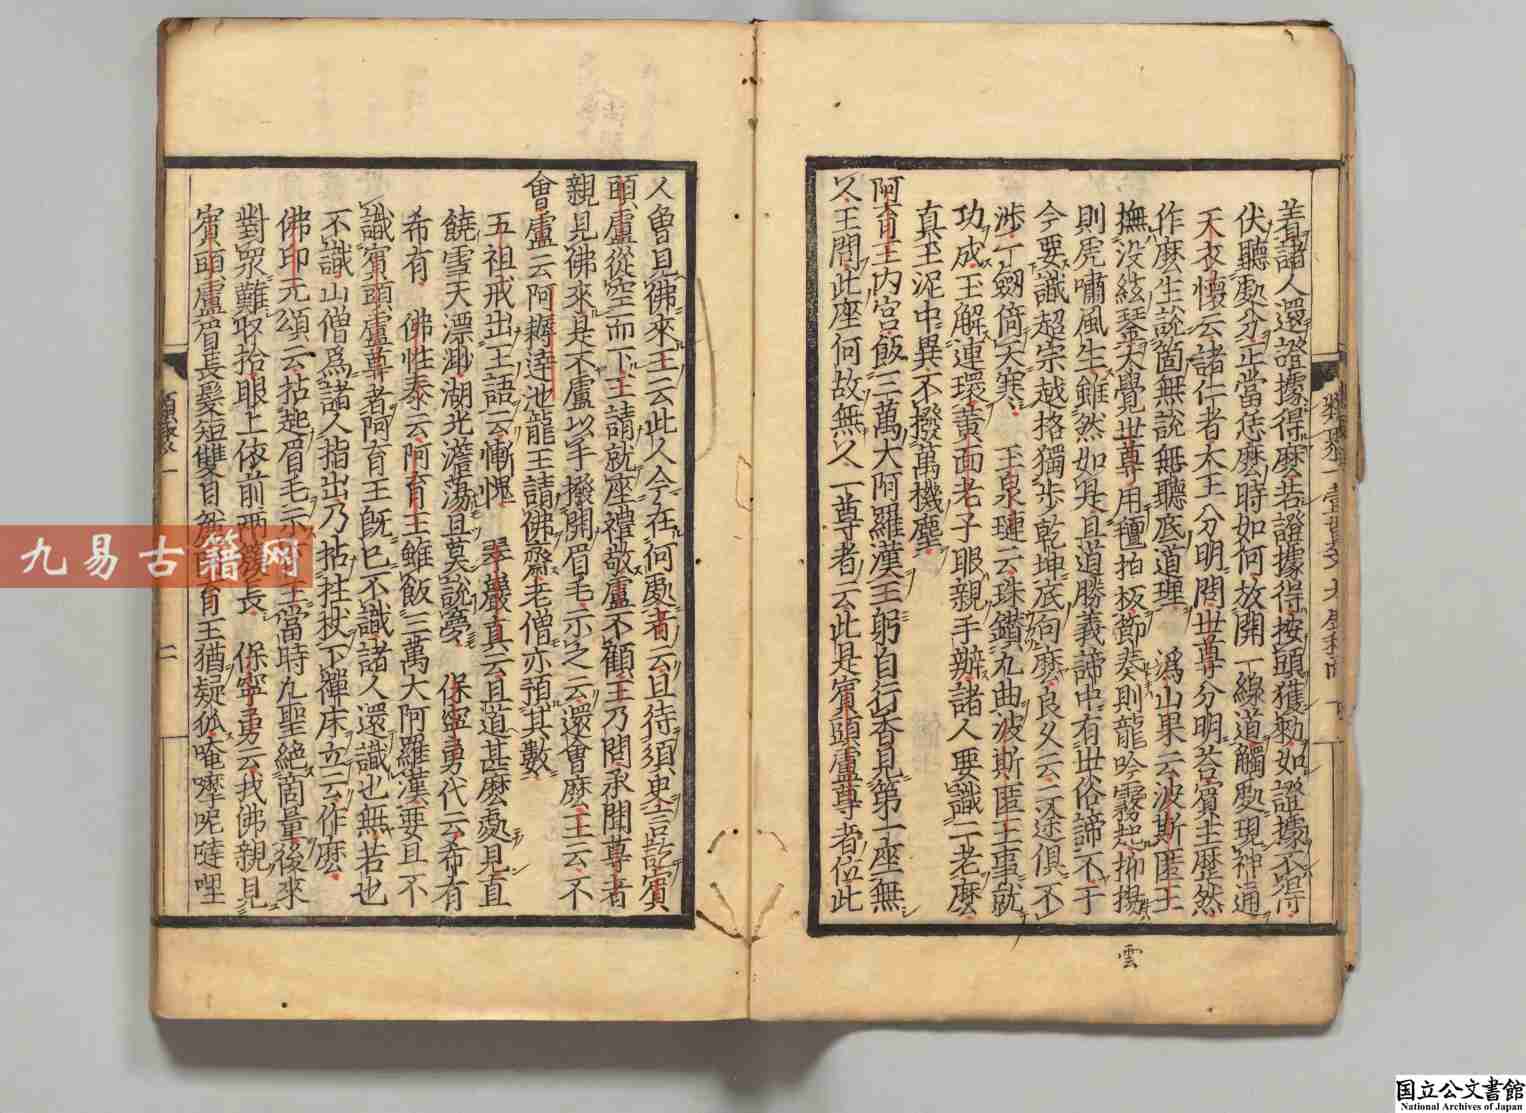 着諸人還證據得麼若證據得按頭獲勅如證據不得
伏聽處分正當恁麼時如何放開一線道觸處現神通
天衣懷云諸仁者大王八分明問世尊分明荅賓主歷然
作麼生說箇無說無聽底道理 溈山果云波斯匿王
撫没絃琴大覺世尊用䄠拍板節奏則龍吟霧起抑揚
則虎嘯風生雖然如是且道勝義諦中有世俗諦不于
今要識超宗越格獨步乾坤底句麼良久云二途俱不
涉一劒倚天寒 玉泉璉云珠鑽九曲波斯匿王事就
功成玉解連環黃面老子眼親手辦諸人要識二老麼
真玉泥中異不撥萬機塵
阿育王内宫飯三萬大阿羅漢王躬自行香見第一座無
人王問此座何故無人一尊者云此是賓頭盧尊者位此
人曾見佛來王云此人今在何處者云且待須臾言訖賓
頭盧從空而下王請就座禮敬盧不顧王乃問承聞尊者
親見佛來是不盧以手撥開眉毛示之云還會麼王云不
會盧云阿耨達池龍王請佛齋老僧亦預其數
五祖戒出王語云慚愧 翠巖真云且道甚麼處見直
饒雪天漂渺湖光澹蕩且莫說夢 保寧勇代云希有
希有 佛性泰云阿育王雖飯三萬大阿羅漢要且不
識賓頭盧尊者阿育王既已不識諸人還識也無若也
不識山僧爲諸人指出乃拈拄杖下禪床立云作麼
佛印元頌云拈起眉毛示王當時九聖絶箇量後來
對眾難収拾眼上依前兩 長 保寧勇云我佛親見
賓頭盧眉長髮短雙目 育王猶疑狐唵㘄呢噠哩
雲
二
九易古籍网
国立公文書館
National Archives of Japan